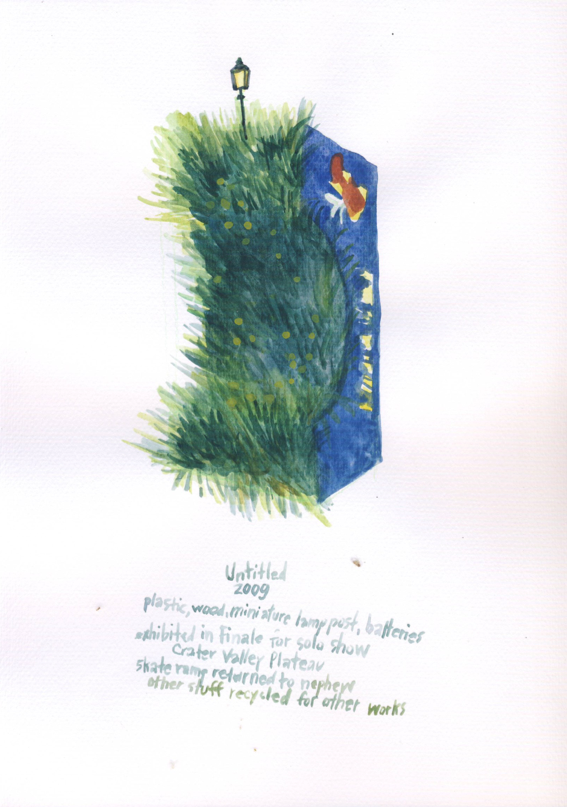 Untitled
2009
plastic, wood, miniature lamp post, batteries
exhibited in Finale for solo show
Crater Valley Plateau
skate ramp returned to nephew
other stuff recycled for other works